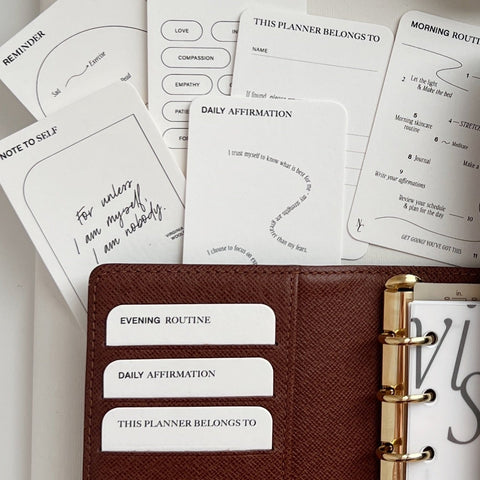 REMINDER
Sad
Exercise
NOTE TO SELF
For unless
I am myself,
I am nobody.
LOVE
COMPASSION
EMPATHY
DAILY AFFIRMATION
I trust myself to know what is best for me
my strengths are
greater than my fears.
I choose to focus on
THIS PLANNER BELONGS TO
NAME
If found, please
MORNING ROUTINE
1
2
Let the light
& Make the bed
4
STRETCH
5
Morning skincare
routine
6
Meditate
8
Journal
9
Write your affirmations
Review your schedule
& plan for the day
10
11
GET GOING! YOU'VE GOT THIS
EVENING ROUTINE
DAILY AFFIRMATION
THIS PLANNER BELONGS TO